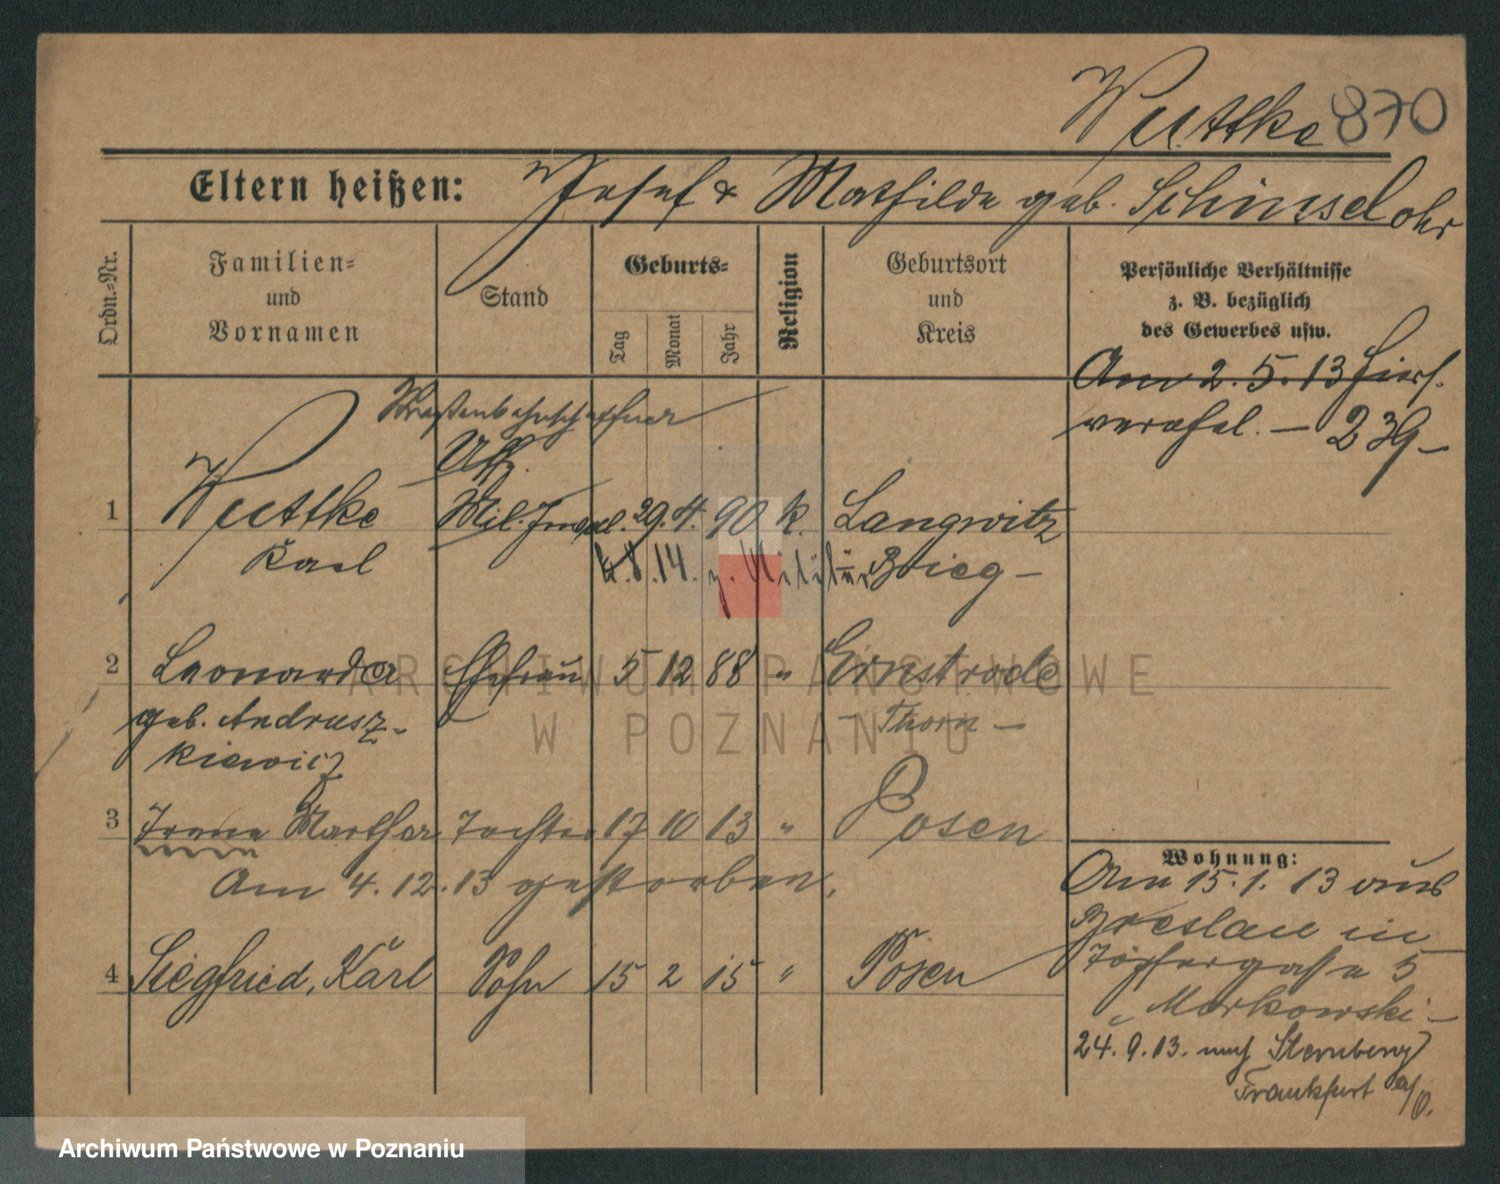 Wuttke 870
Eltern heißen: Josef & Mathilde geb. Schinsel
Ordn.-Nr.
Familien-
und
Vornamen
Stand
Geburts-
Tag
Monat
Jahr
Religion
Geburtsort
und
Kreis
Persönliche Verhältnisse
z. B. bezüglich
des Gewerbes usw.
Am 2. 5. 13 hier
239
Straßenbahnschaffner
Uffz.
1 Wuttke Mil. 29. 4. 90 k. Langwitz
Karl Brieg
4. 8. 14. z. Militär
2 Leonarda Ehefrau 5 12 88 " Ernstrode
geb. Andrusz- Thorn
kiewicz
3 Irene Martha Tochter 17 10 13 " Posen
Am 4. 12. 13 gestorben.
4 Siegfried, Karl Sohn 15 2 15 " Posen
Wohnung:
Am 15. 1. 13 aus
Breslau in
Töpfergasse 5
Markowski
24. 9. 13. nach Sternberg
Frankfurt a/O.
ARCHIWUM PAŃSTWOWE
W POZNANIU
Archiwum Państwowe w Poznaniu